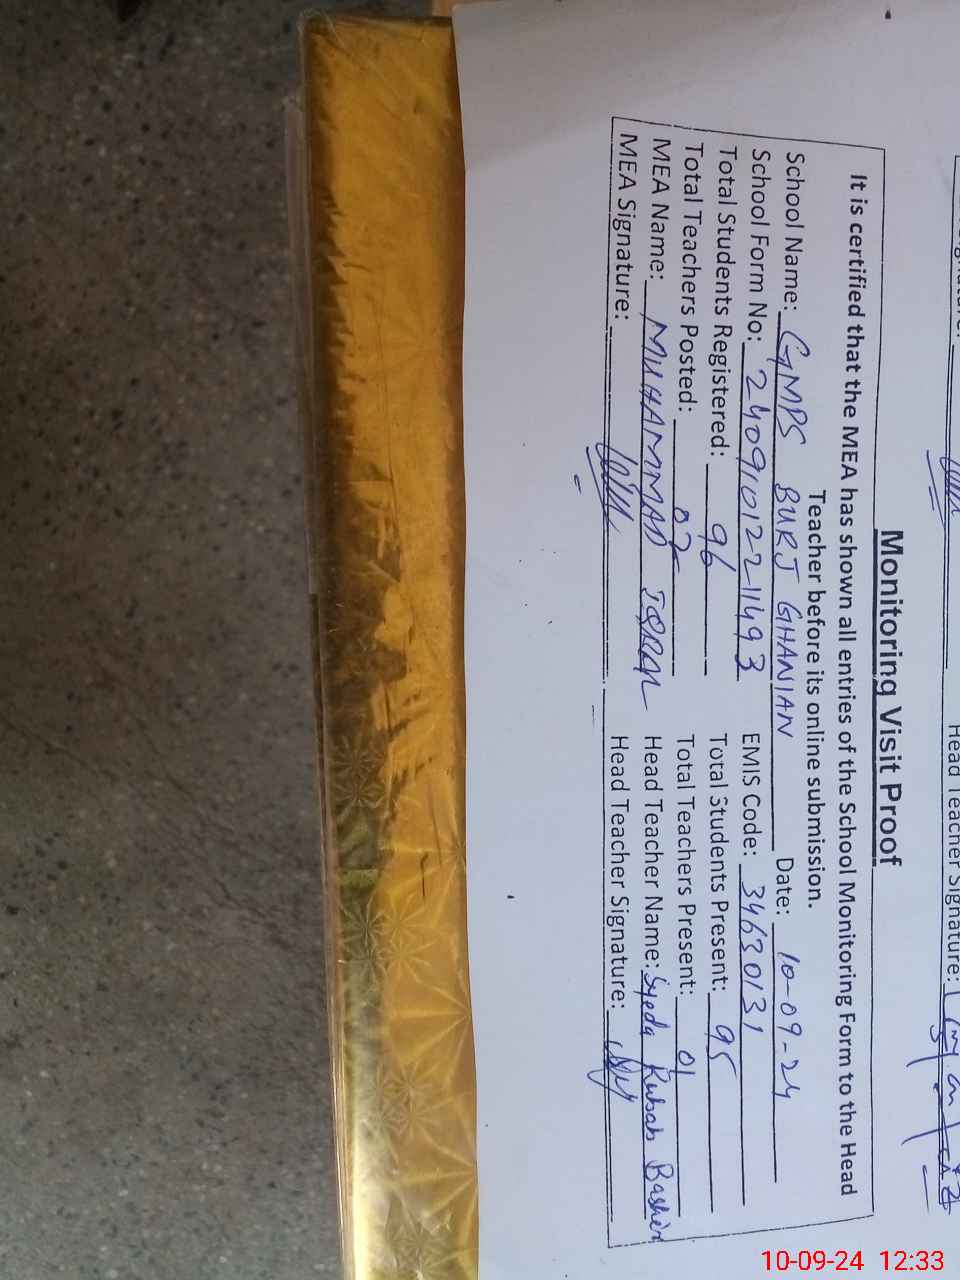 Head Teacher Signature:
Monitoring Visit Proof
It is certified that the MEA has shown all entries of the School Monitoring Form to the Head
Teacher before its online submission.
School Name: GMPS BURJ GHANIAN Date: 10-09-24
School Form No: 24091012211493 EMIS Code: 34630131
Total Students Registered: 96 Total Students Present: 95
Total Teachers Posted: 02 Total Teachers Present: 01
MEA Name: MUHAMMAD IQBAL Head Teacher Name: Syeda Rubab Bashir
MEA Signature: Head Teacher Signature:
10-09-24 12:33